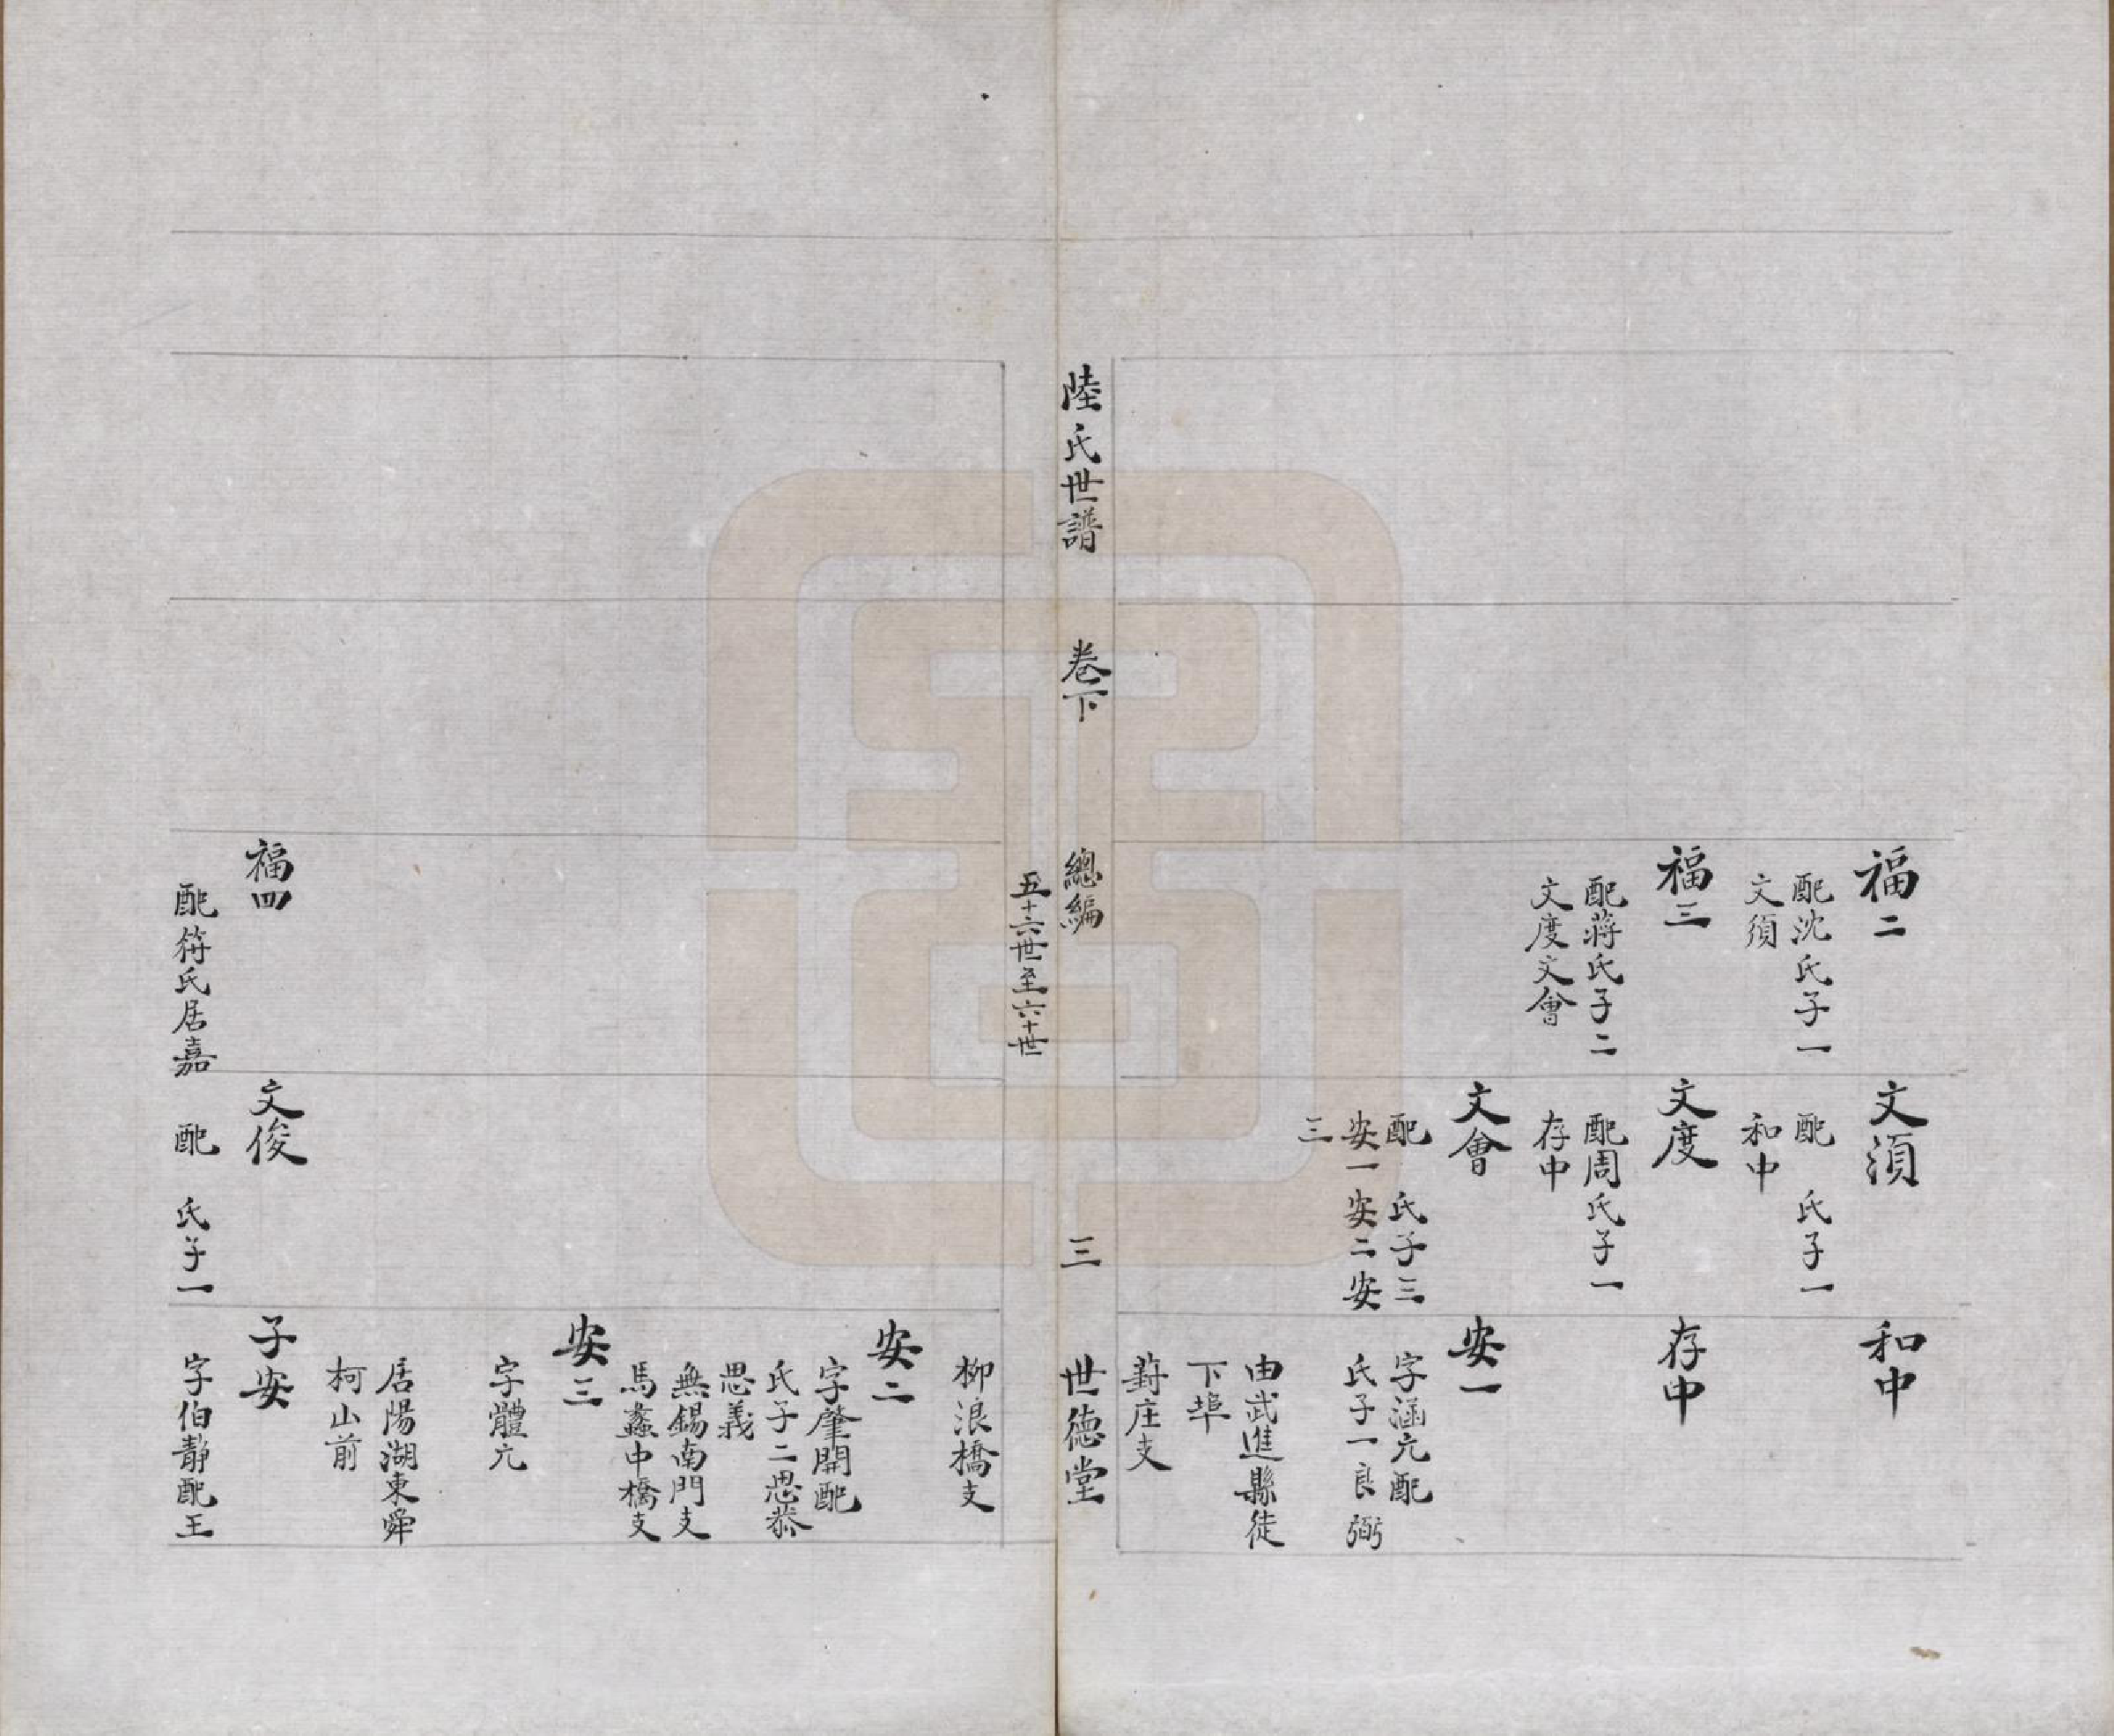 福二
配沈氏子一
文須
福三
配蔣氏子二
文度文會
文須
配　氏子一
和中
文度
配周氏子一
存中
文會
配　氏子三
安一安二安
三
和中
存中
安一
字涵亢配
氏子一良弼
由武進縣徒
下埠
葑庄支
陸氏世譜　卷下　總編　三　世德堂
五十六世至六十世
福四
配符氏居嘉
文俊
配　氏子一
柳浪橋支
安二
字肇開配
氏子二思恭
思義
無錫南門支
馬蠡中橋支
安三
字體亢
居陽湖東舜
柯山前
子安
字伯靜配王